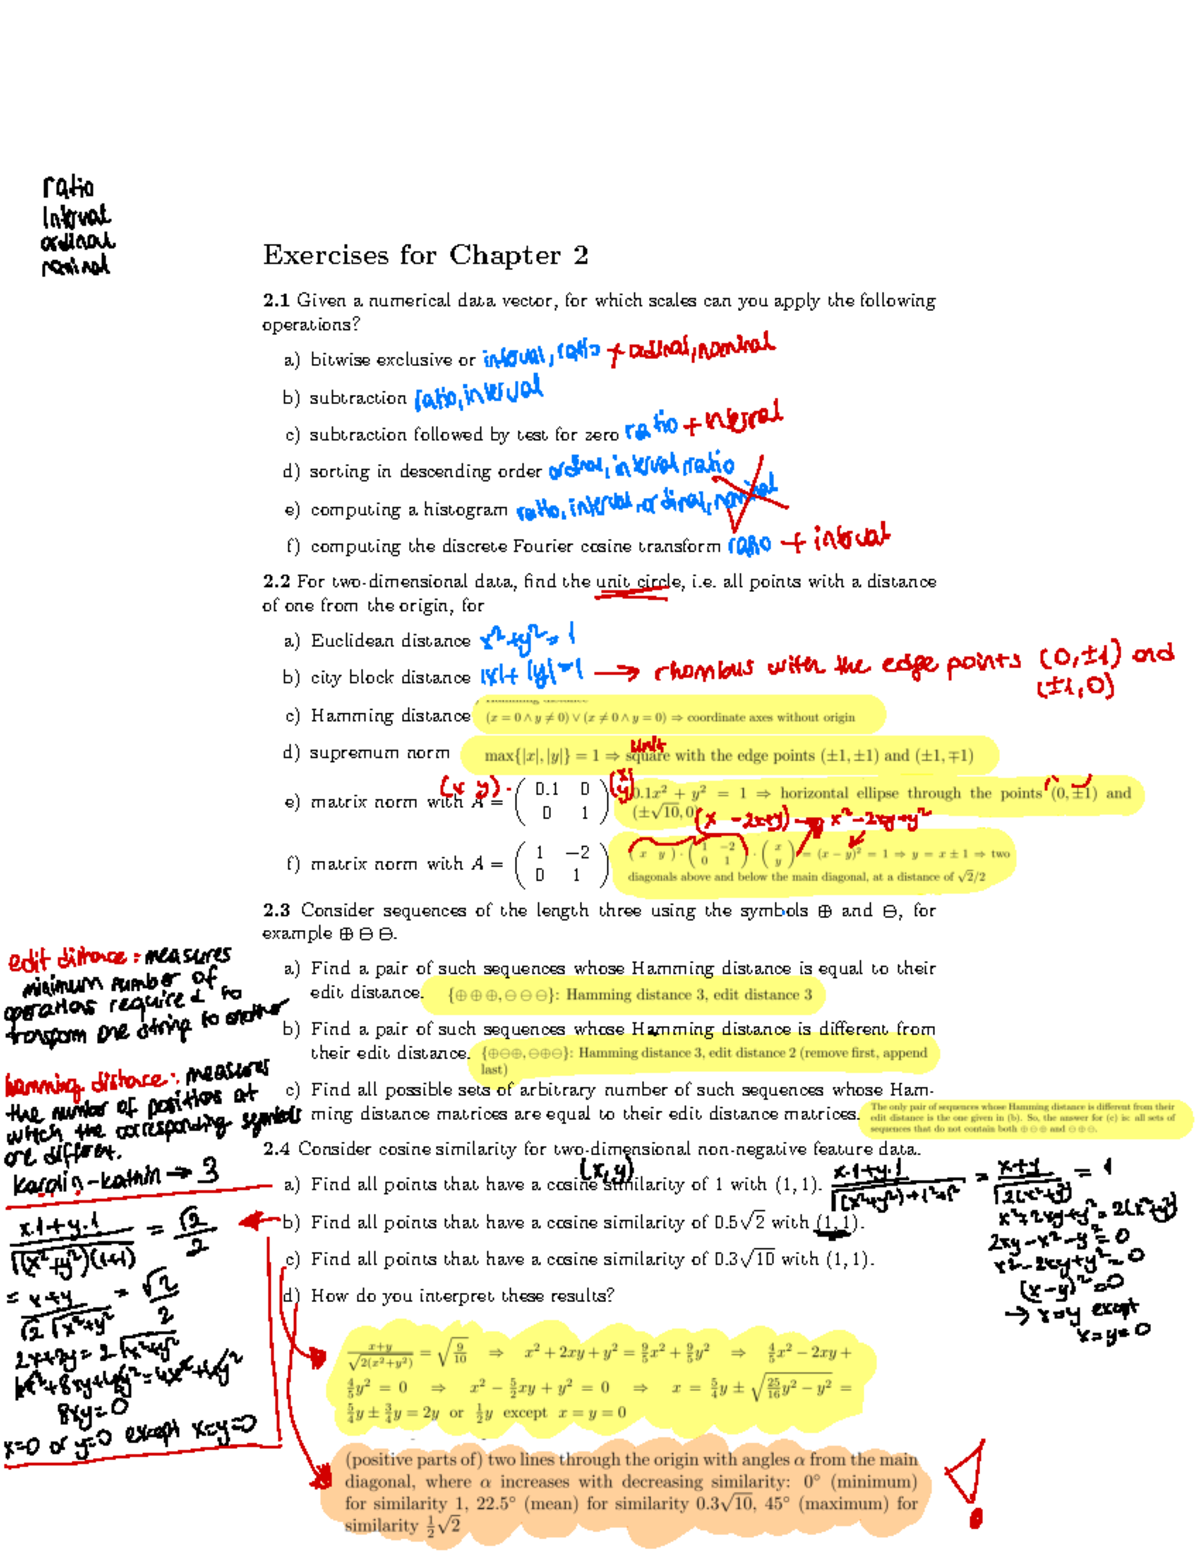 ratio
interval
ordinal
nominal
Exercises for Chapter 2
2.1 Given a numerical data vector, for which scales can you apply the following
operations?
a) bitwise exclusive or interval, ratio + ordinal, nominal
b) subtraction ratio, interval
c) subtraction followed by test for zero ratio + interval
d) sorting in descending order ordinal, interval ratio
e) computing a histogram ratio, interval, ordinal, nominal
f) computing the discrete Fourier cosine transform ratio + interval
2.2 For two-dimensional data, find the unit circle, i.e. all points with a distance
of one from the origin, for
a) Euclidean distance x²+y²=1
b) city block distance |x|+|y|=1 → rhombus with the edge points (0,±1) and
(±1,0)
c) Hamming distance (x = 0 ∧ y ≠ 0) ∨ (x ≠ 0 ∧ y = 0) ⇒ coordinate axes without origin
unit
d) supremum norm max{|x|, |y|} = 1 ⇒ square with the edge points (±1, ±1) and (±1, ∓1)
(x y) · (x y)
e) matrix norm with A = ( 0.1 0 0 1 ) 0.1x² + y² = 1 ⇒ horizontal ellipse through the points (0, ±1) and
(±√10, 0)
(x −2x+y) → x²−2xy+y²
f) matrix norm with A = ( 1 −2 0 1 ) ( x y ) · ( 1 −2 0 1 ) · ( x y ) = (x − y)² = 1 ⇒ y = x ± 1 ⇒ two
diagonals above and below the main diagonal, at a distance of √2/2
2.3 Consider sequences of the length three using the symbols ⊕ and ⊖, for
example ⊕ ⊖ ⊖.
edit distance: measures
minimum number of
operations required to
transform one string to another
a) Find a pair of such sequences whose Hamming distance is equal to their
edit distance. {⊕ ⊕ ⊕, ⊖ ⊖ ⊖}: Hamming distance 3, edit distance 3
b) Find a pair of such sequences whose Hamming distance is different from
their edit distance. {⊕⊖⊕, ⊖⊕⊖}: Hamming distance 3, edit distance 2 (remove first, append
last)
hamming distance: measures
the number of positions at
which the corresponding symbols
are different.
karolin-kathrin → 3
c) Find all possible sets of arbitrary number of such sequences whose Ham-
ming distance matrices are equal to their edit distance matrices.
The only pair of sequences whose Hamming distance is different from their
edit distance is the one given in (b). So, the answer for (c) is: all sets of
sequences that do not contain both ⊕ ⊖ ⊕ and ⊖ ⊕ ⊖.
2.4 Consider cosine similarity for two-dimensional non-negative feature data.
(x,y)
a) Find all points that have a cosine similarity of 1 with (1, 1).
x+y / √(2(x²+y²)) = 1
x²+2xy+y² = 2(x²+y²)
2xy−x²−y² = 0
x²−2xy+y² = 0
(x−y)² = 0
→ x=y except
x=y=0
b) Find all points that have a cosine similarity of 0.5√2 with (1, 1).
x·1+y·1 / √((x²+y²)(1+1)) = √2 / 2
= x+y / √2 √x²+y² = √2 / 2
2x+2y = 2√x²+y²
8xy=0
x=0 or y=0 except x=y=0
c) Find all points that have a cosine similarity of 0.3√10 with (1, 1).
d) How do you interpret these results?
x+y / √(2(x²+y²)) = √(9/10) ⇒ x² + 2xy + y² = 9/5x² + 9/5y² ⇒ 4/5x² − 2xy +
4/5y² = 0 ⇒ x² − 5/2xy + y² = 0 ⇒ x = 5/4y ± √(25/16y² − y²) =
5/4y ± 3/4y = 2y or 1/2y except x = y = 0
(positive parts of) two lines through the origin with angles α from the main
diagonal, where α increases with decreasing similarity: 0° (minimum)
for similarity 1, 22.5° (mean) for similarity 0.3√10, 45° (maximum) for
similarity 1/2√2